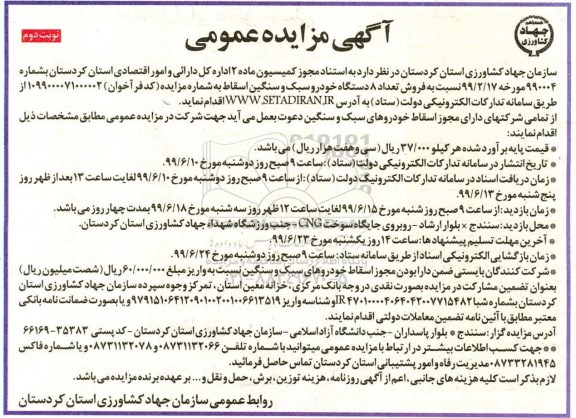 آگهی مزایده عمومی
نوبت دوم
جهاد کشاورزی
سازمان جهاد کشاورزی استان کردستان در نظر دارد به استناد مجوز کمیسیون ماده ۲ اداره کل دارائی و امور اقتصادی استان کردستان بشماره
۹۹۰۰۰۴ مورخه ۹۹/۲/۱۷ نسبت به فروش تعداد ۸ دستگاه خودرو سبک و سنگین اسقاط به شماره مزایده (کد فرآخوان) ۱۰۹۹۰۰۰۷۱۰۰۰۰۰۲ از
طریق سامانه تدارکات الکترونیکی دولت (ستاد) به آدرس WWW.SETADIRAN.IR اقدام نماید.
از تمامی شرکتهای دارای مجوز اسقاط خودروهای سبک و سنگین دعوت بعمل می آید جهت شرکت در مزایده عمومی مطابق مشخصات ذیل
اقدام نمایند:
* قیمت پایه برآورد شده هر کیلو ۳۷/۰۰۰ ریال (سی و هفت هزار ریال) می باشد.
* تاریخ انتشار در سامانه تدارکات الکترونیکی دولت (ستاد): ساعت ۹ صبح روز دوشنبه مورخ ۹۹/۶/۱۰.
* زمان دریافت اسناد در سامانه تدارکات الکترونیک دولت (ستاد): از ساعت ۹ صبح روز دوشنبه مورخ ۹۹/۶/۱۰ لغایت ساعت ۱۳ بعد از ظهر روز
پنج شنبه مورخ ۹۹/۶/۱۳.
* زمان بازدید: از ساعت ۹ صبح روز شنبه مورخ ۹۹/۶/۱۵ لغایت ساعت ۱۲ ظهر روز سه شنبه مورخ ۹۹/۶/۱۸ بمدت چهار روز می باشد.
* محل بازدید: سنندج * بلوار ارشاد - روبروی جایگاه سوخت CNG - جنب ورزشگاه شهداء جهاد کشاورزی استان کردستان.
* آخرین مهلت تسلیم پیشنهادها: ساعت ۱۴ روز یکشنبه مورخ ۹۹/۶/۲۳.
* زمان بازگشایی الکترونیکی اسناد از طریق سامانه ستاد: ساعت ۹ صبح روز دوشنبه مورخ ۹۹/۶/۲۴.
* شرکت کنندگان بایستی ضمن دارا بودن مجوز اسقاط خودروهای سبک و سنگین نسبت به واریز مبلغ ۶۰/۰۰۰/۰۰۰ ریال (شصت میلیون ریال)
بعنوان تضمین مشارکت در مزایده نقدی در وجه بانک مرکزی، خزانه معین استان، تمرکز وجوه سپرده سازمان جهاد کشاورزی استان
کردستان بشماره شبا IR۴۷۰۱۰۰۰۰۴۰۶۴۰۲۰۰۷۷۱۵۴۸۲ و شناسه واریز ۹۷۹۱۵۱۰۶۴۱۲۰۹۰۱۰۲۰۰۱۰۰۶۶۱۳۵۱۹ و یا بصورت ضمانت نامه بانکی
معتبر مطابق با آئین نامه تضمین معاملات دولتی اقدام نمایند.
آدرس مزایده گزار: سنندج * بلوار پاسداران - جنب دانشگاه آزاد اسلامی - سازمان جهاد کشاورزی استان کردستان - کد پستی ۳۵۳۸۳-۶۶۱۶۹
** جهت کسب اطلاعات بیشتر در ارتباط با مزایده عمومی میتوانید با شماره تلفن ۰۸۷۳۱۱۳۲۰۶۶ و ۰۸۷۳۱۱۳۲۰۷۸ و یا شماره فاکس
۰۸۷۳۳۲۸۱۹۴۵ مدیریت رفاه و امور پشتیبانی استان کردستان تماس حاصل فرمائید.
لازم بذکر است کلیه هزینه های جانبی، اعم از آگهی روزنامه، هزینه توزین، برش، حمل و نقل و... بر عهده برنده مزایده می باشد.
روابط عمومی سازمان جهاد کشاورزی استان کردستان